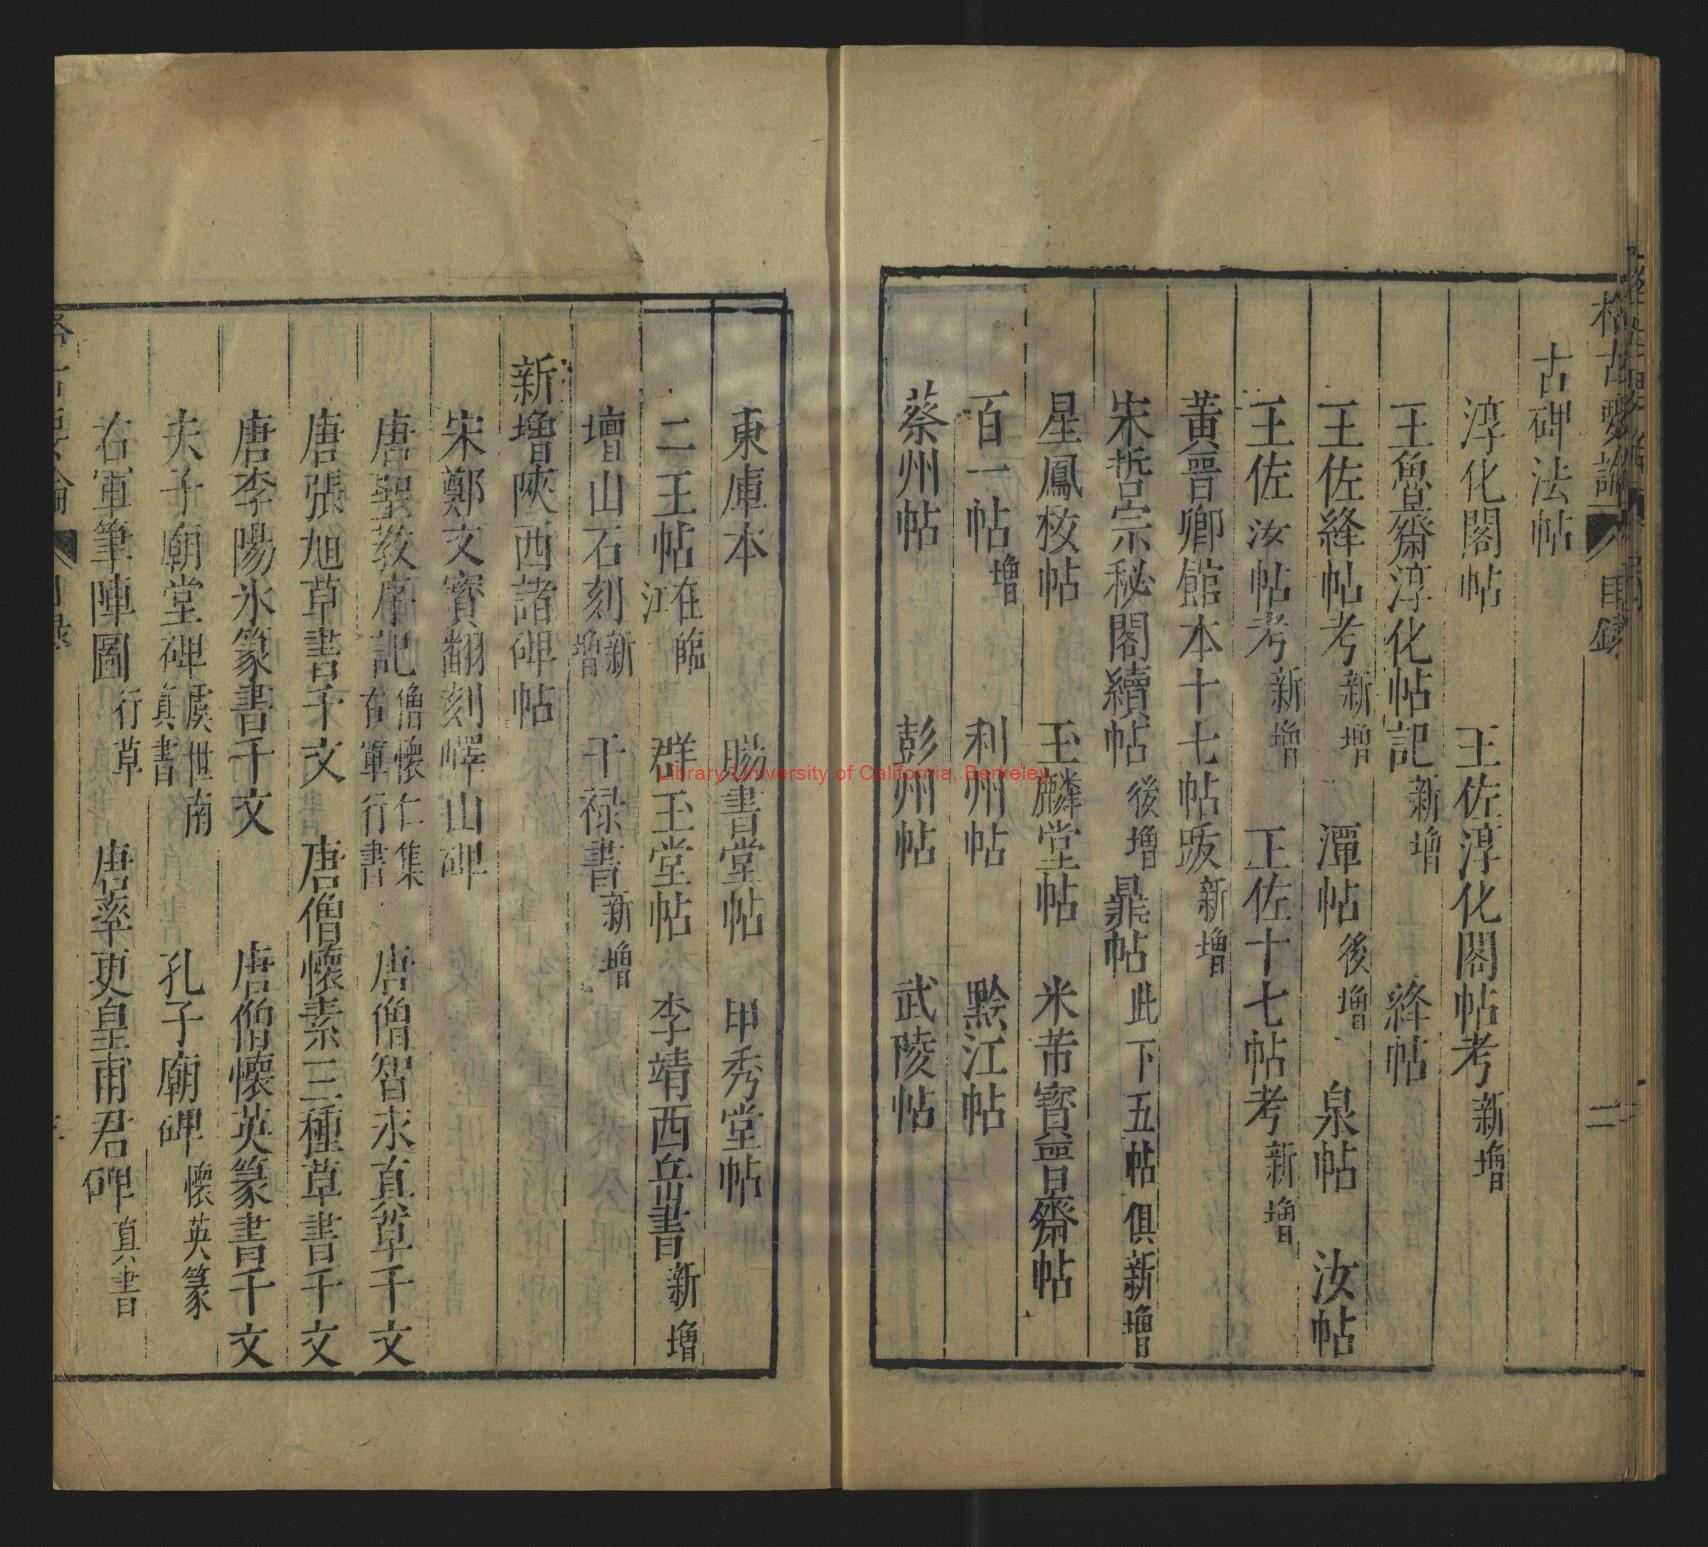 格古要論 目錄 二
古碑法帖
淳化閣帖 王佐淳化閣帖考新增
王魯齋淳化帖記新增 絳帖
王佐絳帖考新增 潭帖後增 泉帖 汝帖
王佐汝帖考新增 王佐十七帖考新增
黃晉卿館本十七帖跋新增
宋哲宗秘閣續帖後增 鼎帖此下五帖俱新增
星鳳校帖 玉麟堂帖 米芾寶晉齋帖
百一帖增 利州帖 黔江帖
蔡州帖 彭州帖 武陵帖
東庫本 賜書堂帖 甲秀堂帖
二王帖在臨江 群玉堂帖 李靖西岳書新增
壇山石刻新增 干祿書新增
新增陝西諸碑帖
宋鄭文寶翻刻嶧山碑
唐聖教序記僧懷仁集右軍行書 唐僧智永真草千文
唐張旭草書千文 唐僧懷素三種草書千文
唐李陽氷篆書千文 唐僧懷英篆書千文
夫子廟堂碑虞世南真書 孔子廟碑懷英篆
右軍筆陣圖行草 唐率更皇甫君碑真書
格古要論 目錄
Library University of California, Berkeley